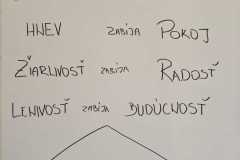 HNEV ZABÍJA POKOJ
ŽIARLIVOSŤ ZABÍJA RADOSŤ
LENIVOSŤ ZABÍJA BUDÚCNOSŤ